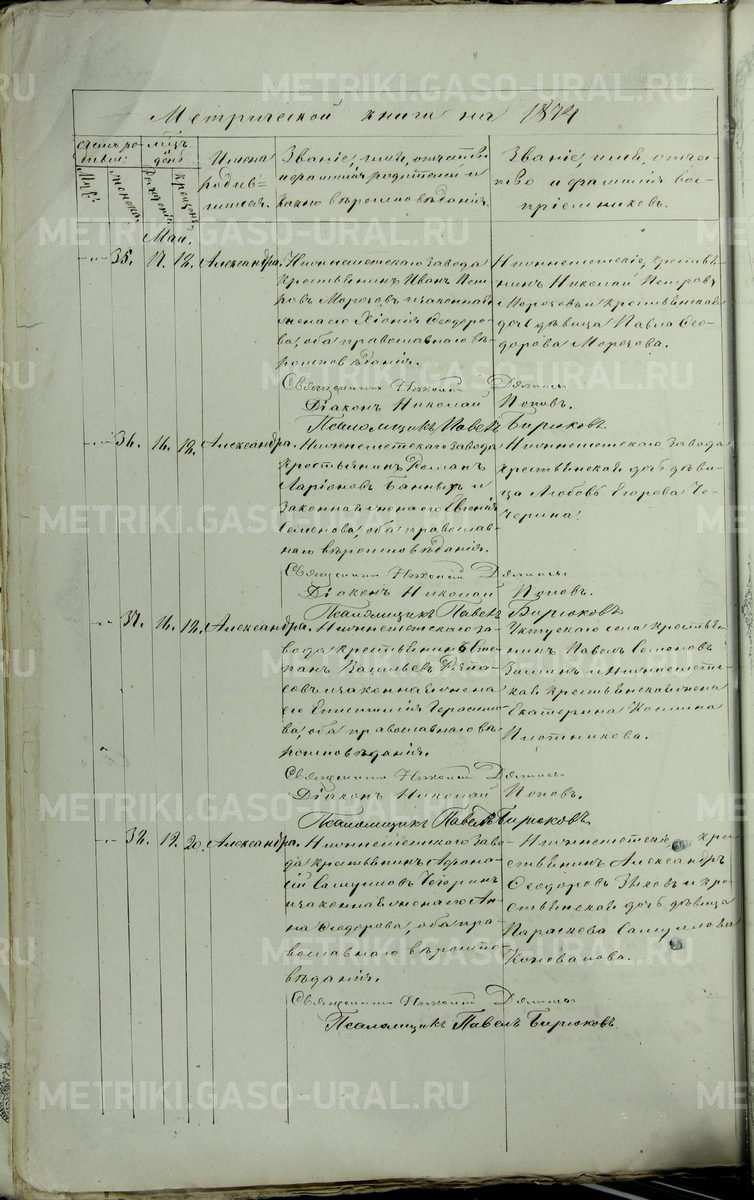 METRIKI.GASO-URAL.RU
Метрической книги на 1874
Счетъ ро-
дивш:
Муж:
женска
Мцъ
и
день
Рожденія
Крещен.
Имена
родив=
шихся.
Званіе, имя, отчество
и фамилія родителей и
какого вѣроисповѣданія.
Званіе, имя, отче-
ство и фамилія вос-
пріемниковъ.
Маи.
35. 17. 18. Александра.
Нижнеисетскаго завода
крестьянинъ Иванъ Пет-
ровъ Морозовъ и законная
жена его Хіонія Ѳеодоро-
ва, оба православнаго вѣ-
роисповѣданія.
Нижнеисетскіе, крестья-
нинъ Николай Петровъ
Морозовъ и крестьянская
дочь дѣвица Павла Ѳео-
дорова Морозова.
Священникъ Николай
Діаконъ Николай Поповъ.
Псаломщикъ Павелъ Бирюковъ
36. 16. 18. Александра.
Нижнеисетскаго завода
крестьянинъ Романъ
Ларіоновъ Банныхъ и
законная жена его Евгенія
Семенова, оба православ-
наго вѣроисповѣданія.
Нижнеисетскаго завода
крестьянская дочь дѣви-
ца Любовь Егорова Че-
черина.
Священникъ Николай
Діаконъ Николай Поповъ.
Псаломщикъ Павелъ Бирюковъ
37. 16. 18. Александра.
Нижнеисетскаго за-
вода крестьянинъ Сте-
панъ Васильевъ
и законная жена
его Герасимо-
ва, оба православнаго вѣ-
роисповѣданія.
Уктускаго села крестья-
нинъ Павелъ Семеновъ
Зыминъ и Нижнеисетс-
кая крестьянская жена
Екатерина Козмина
Плотникова.
Священникъ Николай
Діаконъ Николай Поповъ.
Псаломщикъ Павелъ Бирюковъ
38. 19. 20. Александра.
Нижнеисетскаго заво-
да крестьянинъ Афана-
сій Самуиловъ Чечеринъ
и законная жена его Ан-
на Ѳеодорова, оба пра-
вославнаго вѣроиспо-
вѣданія.
Нижнеисетскіе, кре-
стьянинъ Александръ
Ѳеодоровъ Зыковъ и кре-
стьянская дочь дѣвица
Параскева Самуилова
Коновалова.
Священникъ Николай
Псаломщикъ Павелъ Бирюковъ